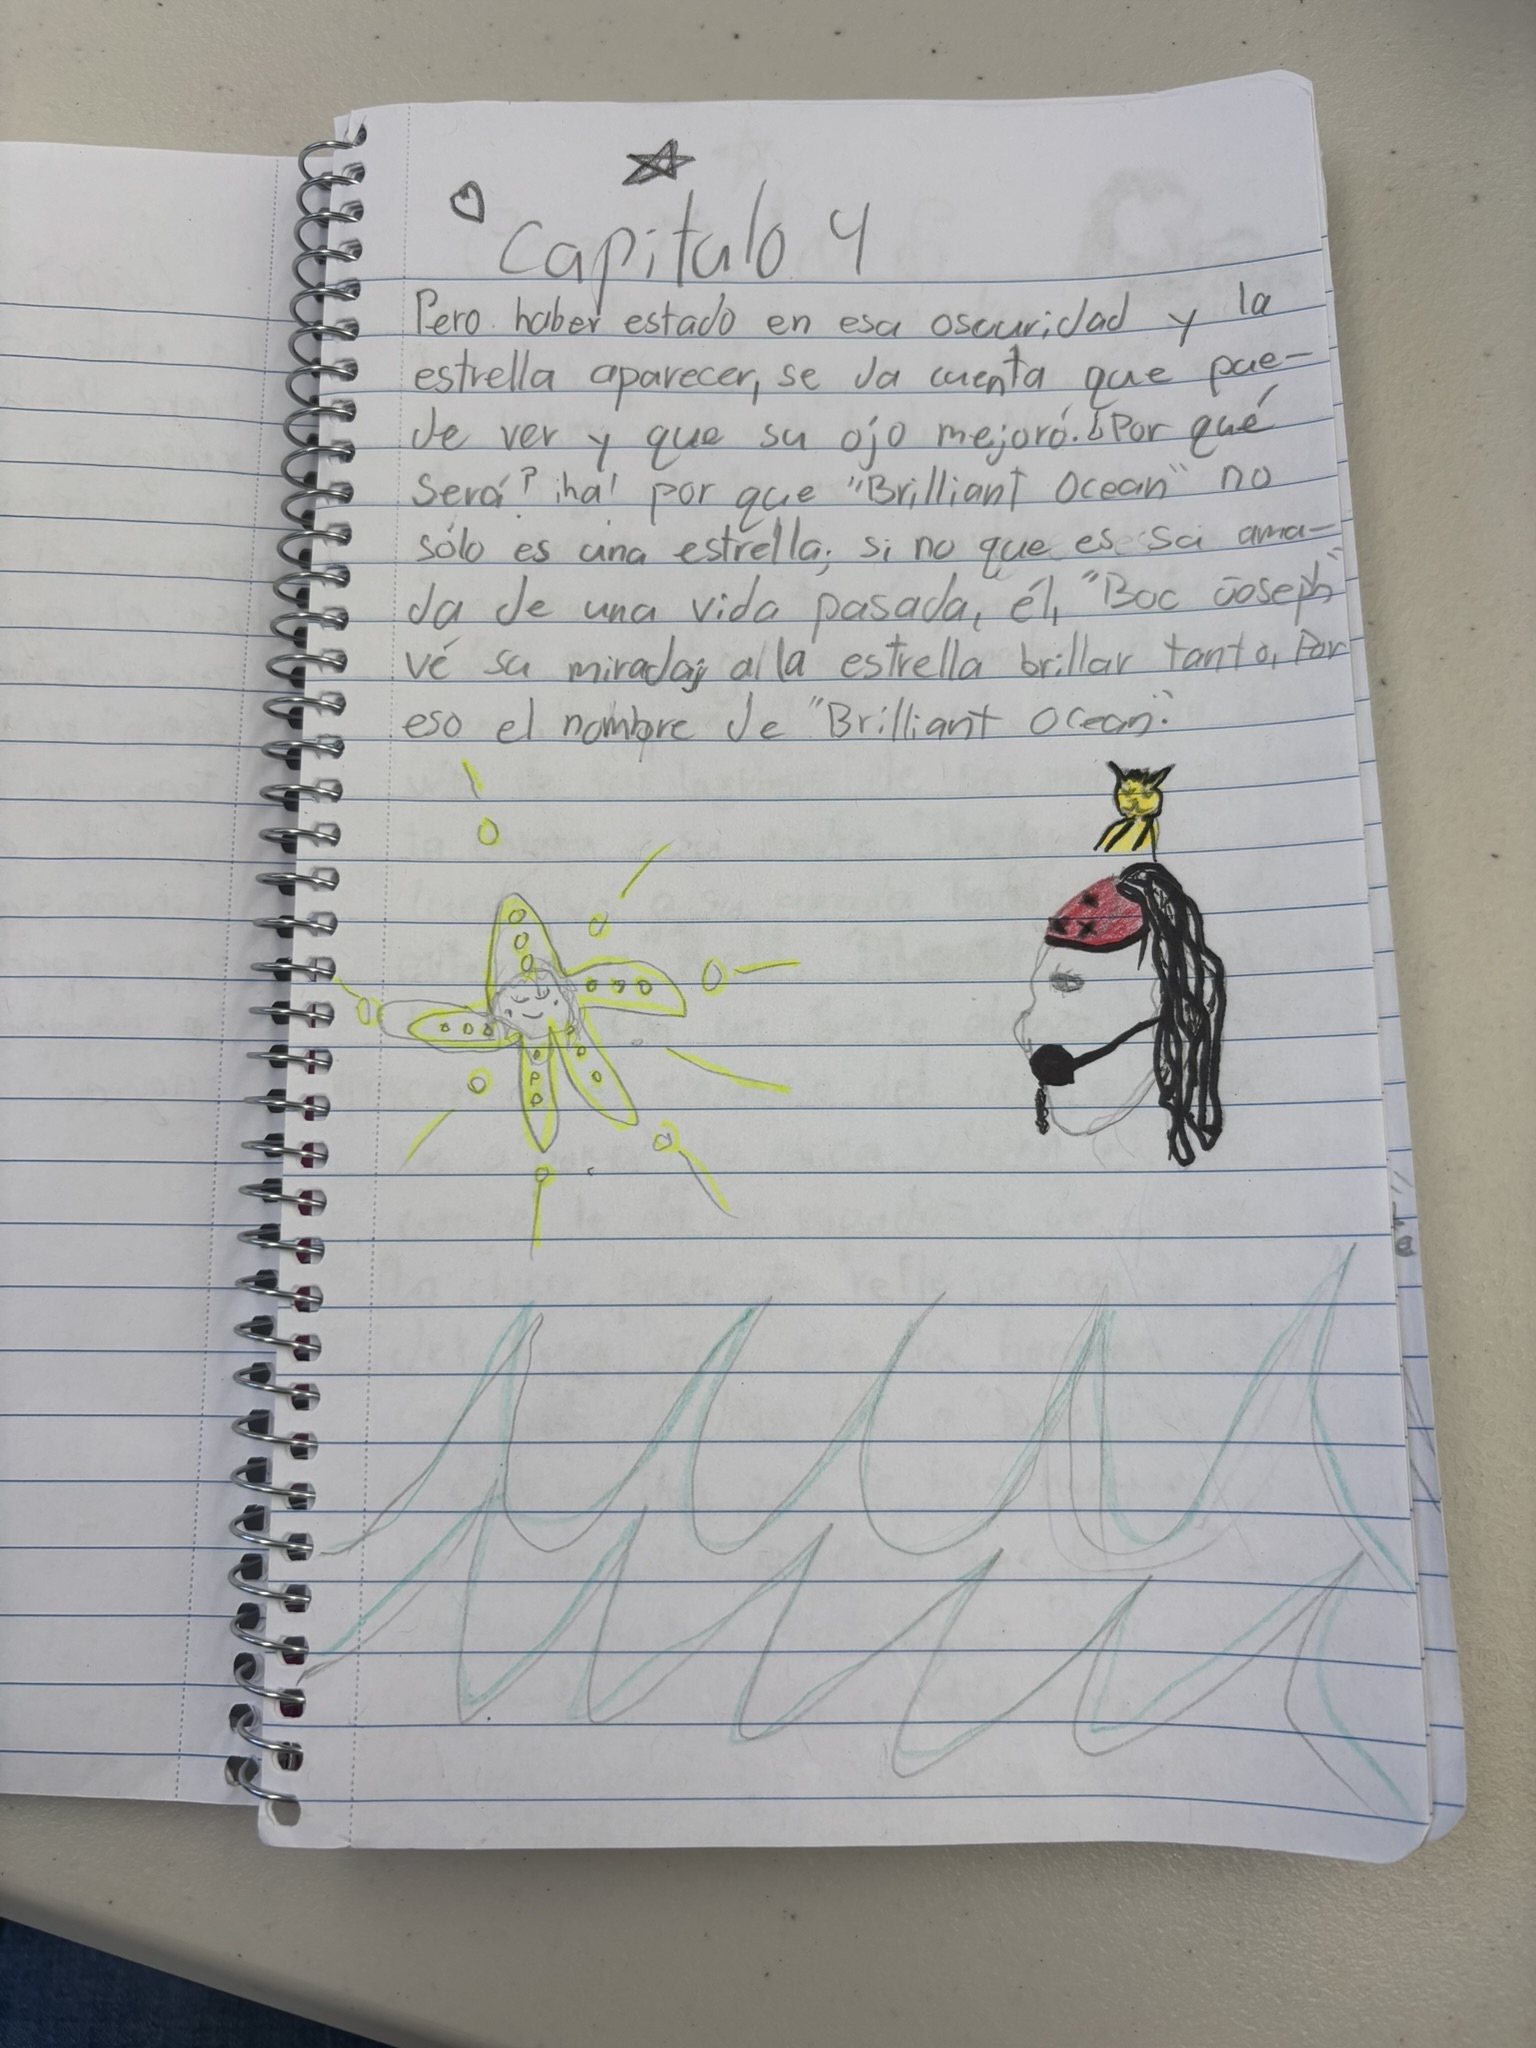 Capitulo 4
Pero haber estado en esa oscuridad y la
estrella aparecer, se da cuenta que pue-
de ver y que su ojo mejoró. ¿Por qué
será? ¡ha! por que "Brilliant Ocean" no
sólo es una estrella, si no que es su ama-
da de una vida pasada, él, "Boc Joseph"
vé su mirada, a la estrella brillar tanto, Por
eso el nombre de "Brilliant Ocean".